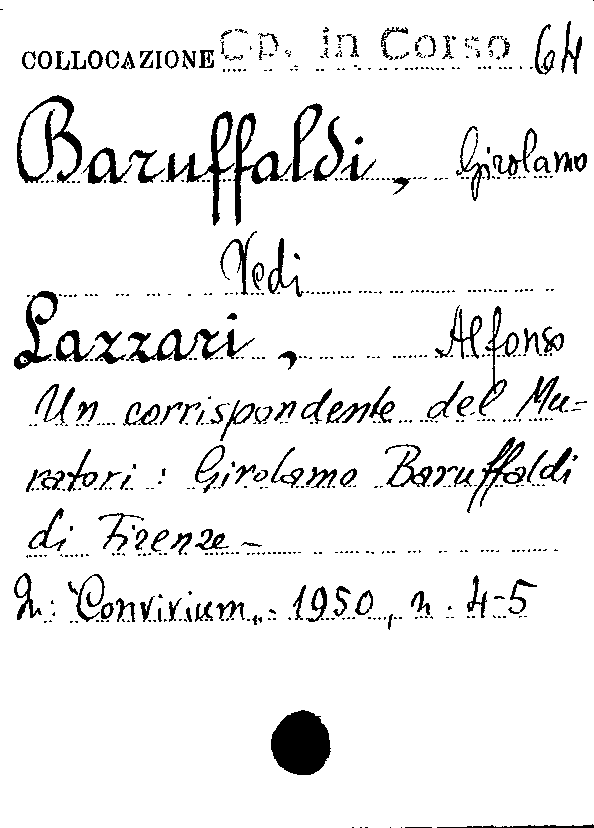 COLLOCAZIONE Op. in Corso 64
Baruffaldi, Girolamo
Vedi
Lazzari, Alfonso
Un corrispondente del Mu=
ratori: Girolamo Baruffaldi
di Firenze -
In: "Convivium„. 1950, n. 4-5